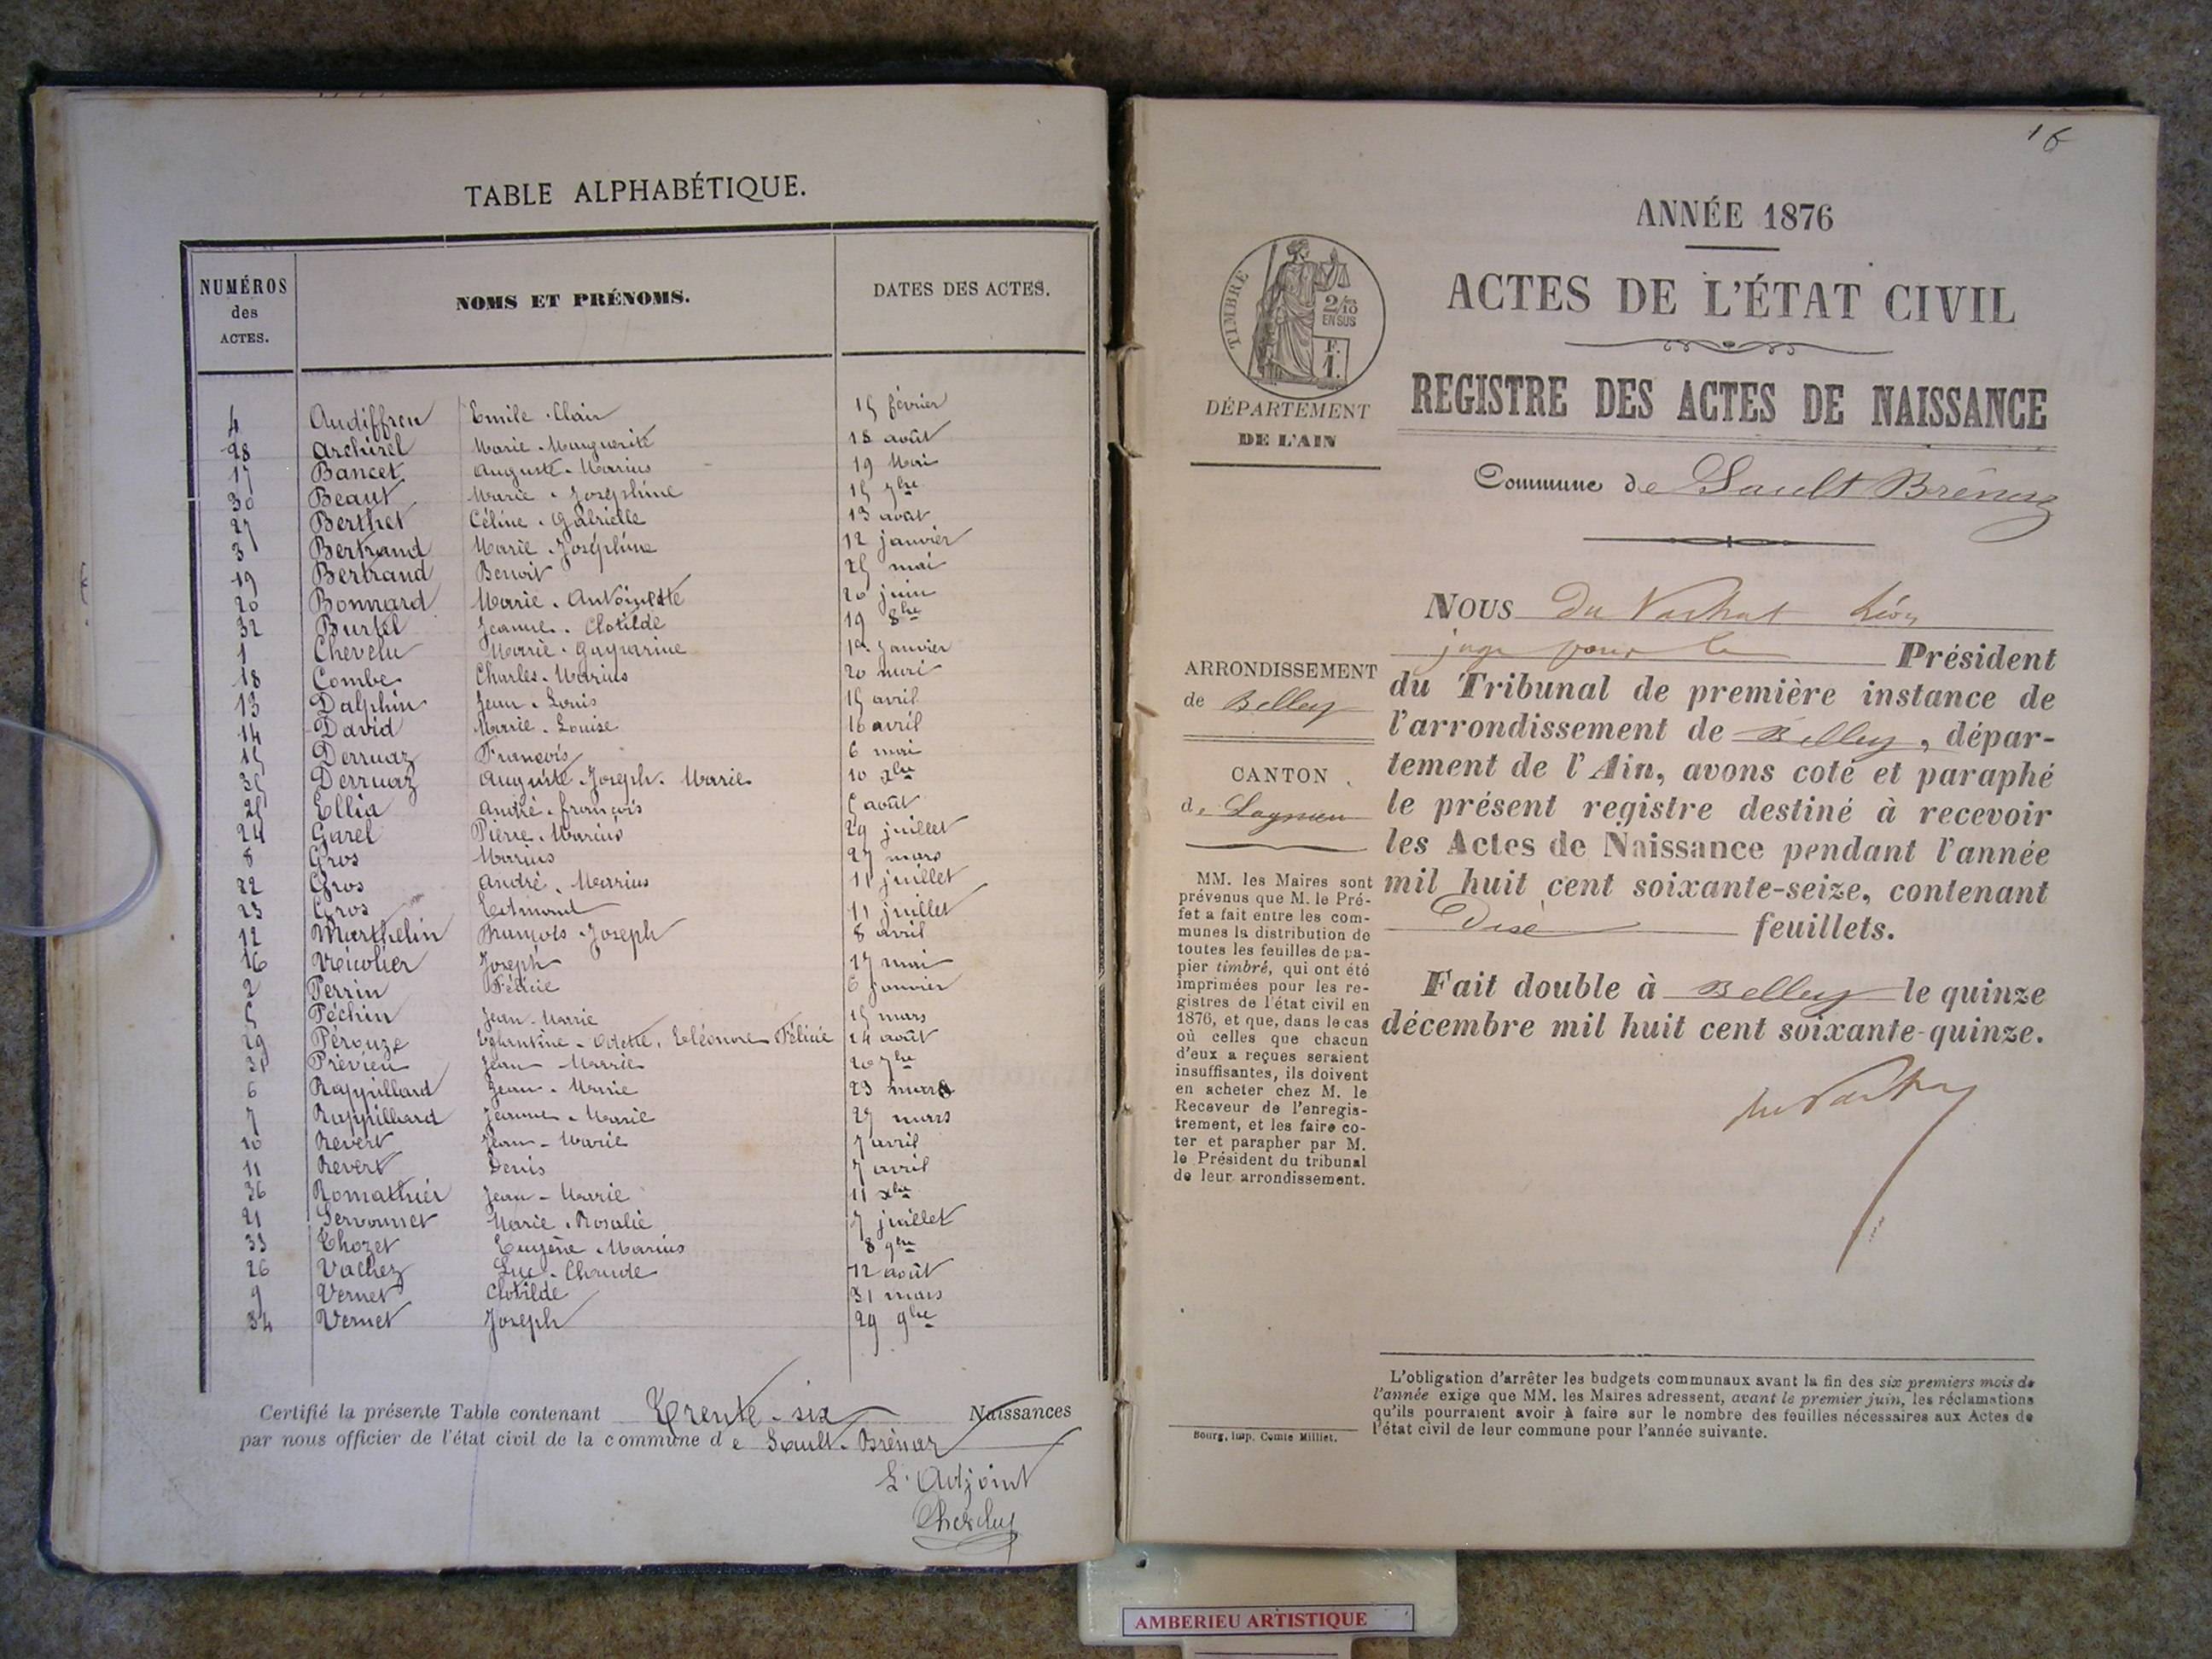 TABLE ALPHABÉTIQUE.
NUMÉROS des ACTES. NOMS ET PRÉNOMS. DATES DES ACTES.
4 Audiffren Emile-Clair 15 février
28 Archirel Marie-Marguerite 18 août
17 Bancet Auguste-Marius 19 Mai
30 Beaut Marie-Joséphine 15 7bre
27 Berthet Céline-Gabrielle 13 août
3 Bertrand Marie-Joséphine 12 janvier
19 Bertrand Benoit 25 mai
20 Bonnard Marie-Antoinette 20 juin
32 Burtel Jeanne-Clotilde 19 8bre
1 Chevelu Marie-Gasparine 1er Janvier
18 Combe Charles-Marius 20 mai
13 Dalphin Jean-Louis 15 avril
14 David Marie-Louise 16 avril
15 Derruaz François 6 mai
35 Derruaz Auguste-Joseph-Marie 10 xbre
25 Ellia André-françois 5 août
24 Garel Pierre-Marius 29 juillet
8 Gros Marius 27 mars
22 Gros André-Marius 11 juillet
23 Gros Edmond 11 juillet
12 Marthelin François-Joseph 8 avril
16 Joseph 17 mai
2 Perrin Félicie 6 Janvier
5 Péchin Jean-Marie 15 mars
29 Pérouze Eglantine-Odette, Eléonore Félicie 24 août
31 Prévieu Jean-Marie 20 7bre
6 Rappillard Jean-Marie 23 mars
7 Rappillard Jeanne-Marie 27 mars
10 Revert Jean-Marie 7 avril
11 Revert Denis 7 avril
36 Romathier Jean-Marie 11 xbre
21 Servonnet Marie-Rosalie 7 juillet
33 Thozet Eugène-Marius 8 9bre
26 Vachez Luc-Claude 12 août
9 Vernet Clotilde 31 mars
34 Vernet Joseph 29 9bre
Certifié la présente Table contenant Trente-six Naissances
par nous officier de l'état civil de la commune de Sault-Brénaz
L'Adjoint
16
ANNÉE 1876
ACTES DE L'ÉTAT CIVIL
REGISTRE DES ACTES DE NAISSANCE
TIMBRE
2/10
EN SUS
F.
1.
DÉPARTEMENT
DE L'AIN
Commune de Sault Brénaz
NOUS Du Vachat Léon
juge pour le Président
du Tribunal de première instance de
l'arrondissement de Belley, dépar-
tement de l'Ain, avons coté et paraphé
le présent registre destiné à recevoir
les Actes de Naissance pendant l'année
mil huit cent soixante-seize, contenant
feuillets.
Fait double à Belley le quinze
décembre mil huit cent soixante-quinze.
du Vachat
ARRONDISSEMENT
de Belley
CANTON
de Lagnieu
MM. les Maires sont
prévenus que M. le Pré-
fet a fait entre les com-
munes la distribution de
toutes les feuilles de pa-
pier timbré, qui ont été
imprimées pour les re-
gistres de l'état civil en
1876, et que, dans le cas
où celles que chacun
d'eux a reçues seraient
insuffisantes, ils doivent
en acheter chez M. le
Receveur de l'enregis-
trement, et les faire co-
ter et parapher par M.
le Président du tribunal
de leur arrondissement.
Bourg, Imp. Comte Milliet.
L'obligation d'arrêter les budgets communaux avant la fin des six premiers mois de
l'année exige que MM. les Maires adressent, avant le premier juin, les réclamations
qu'ils pourraient avoir à faire sur le nombre des feuilles nécessaires aux Actes de
l'état civil de leur commune pour l'année suivante.
AMBERIEU ARTISTIQUE